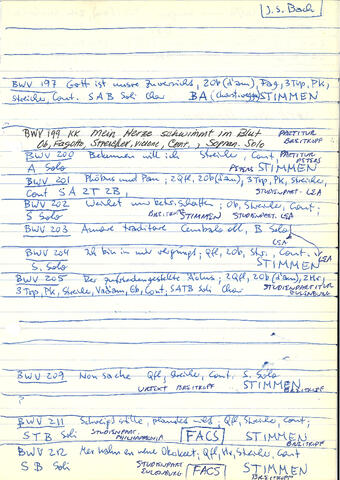 J.S. Bach
BWV 197 Gott ist unsre Zuversicht, 2Ob (d'am), Fag, 3Trp, Pk,
Streicher, Cont. SAB Soli Chor BA STIMMEN
BWV 199 KK Mein Herze schwimmt im Blut PARTITUR
Ob, Fagotte, Streicher, Cont., Sopran. Solo BREITKOPF
BWV 200 Bekennen will ich Streiche, Cont, PARTITUR PETERS
A Solo PETERS STIMMEN
BWV 201 Phöbus und Pan; 2Qfl, 2Ob (d'am), 3Trp, Pk, Streiche,
Cont SA 2T 2B, STUDIENPART.
BWV 202 Weichet nur betr. Schatten; Ob, Streiche, Cont;
S Solo BREITKOPF STIMMEN STUDIENPART. LEA
BWV 203 Amore traditore Cembalo obl, B Solo
LEA
BWV 204 Ich bin in mir vergnügt; Qfl, 2Ob, Str., Cont.
S. Solo STIMMEN LEA
BWV 205 Der zufriedengestellte Äolus; 2Qfl, 2Ob (d'am), 2Hr,
3Trp, Pk, Streiche, Cont, SATB Soli Chor STUDIENPARTITUR
BWV 209 Non sa che Qfl, Streiche, Cont. S. Solo
URTEXT BREITKOPF STIMMEN BREITKOPF
?
BWV 211 Schweigt stille, plaudert nicht, Qfl, Streiche, Cont;
STB Soli STUDIENPART. PHILHARMONIA FACS STIMMEN BREITKOPF
BWV 212 Mer hahn en neue Oberkeet, Qfl, Hr, Streiche, Cont
SB Soli STUDIENPART EULENBURG FACS STIMMEN BREITKOPF